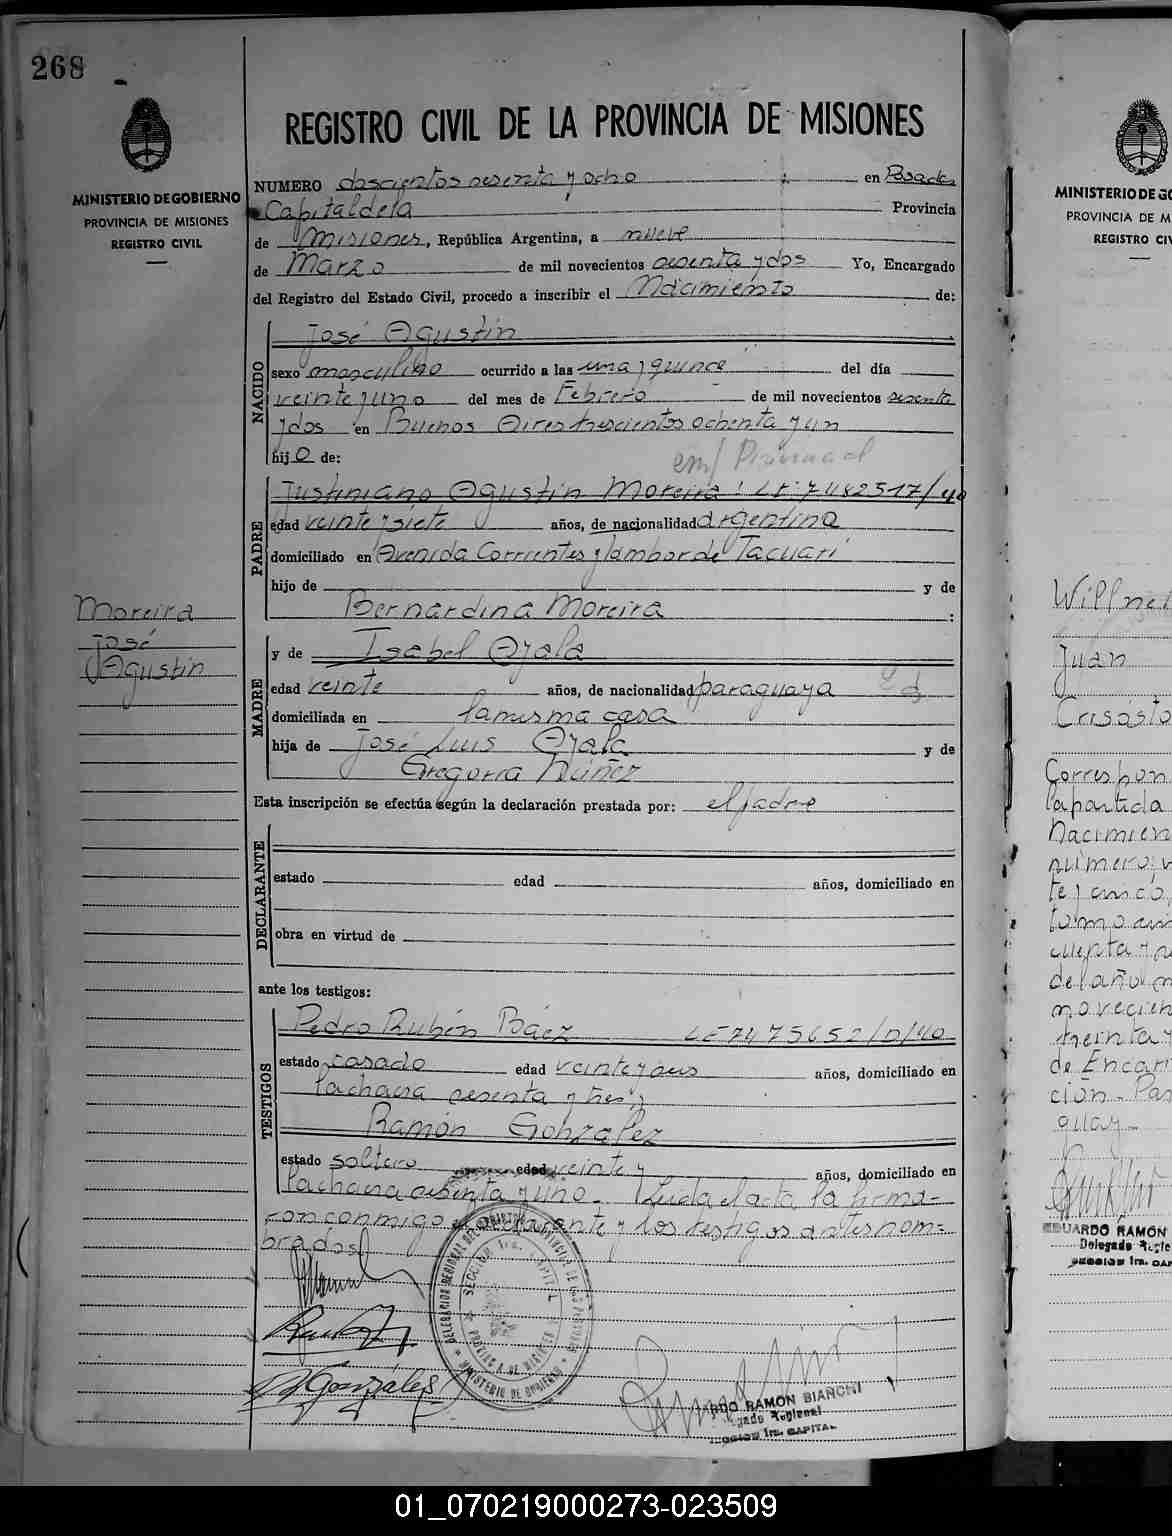 268
MINISTERIO DE GOBIERNO
PROVINCIA DE MISIONES
REGISTRO CIVIL
REGISTRO CIVIL DE LA PROVINCIA DE MISIONES
NUMERO doscientos sesenta y ocho en Posadas
Capital de la Provincia
de Misiones, República Argentina, a nueve
de Marzo de mil novecientos sesenta y dos Yo, Encargado
del Registro del Estado Civil, procedo a inscribir el Nacimiento de:
NACIDO
José Agustín
sexo masculino ocurrido a las una y quince del día
veinte y uno del mes de Febrero de mil novecientos sesenta
y dos en Buenos Aires trescientos ochenta y un
hijo de:
PADRE
Justiniano Agustin Moreira: LE: 7482517/40
edad veinte y siete años, de nacionalidad argentina
domiciliado en Avenida Corrientes y Tambor de Tacuarí
hijo de y de
Bernardina Moreira :
Moreira
José
Agustin
MADRE
y de Isabel Ayala
edad veinte años, de nacionalidad paraguaya
domiciliada en la misma casa
hija de José Luis Ayala y de
Gregoria Núñez
Esta inscripción se efectúa según la declaración prestada por: el padre
DECLARANTE
estado edad años, domiciliado en
obra en virtud de
ante los testigos:
TESTIGOS
Pedro Rubén Báez LE 7475652/D/40
estado casado edad veinte y años, domiciliado en
la chacra sesenta y tres;
Ramón Gonzalez
estado soltero edad veinte y años, domiciliado en
la chacra sesenta y uno. Leida el acta la firma-
ron conmigo el declarante y los testigos antes nom-
brados
R Gonzáles
DELEGACION REGIONAL DEL REGISTRO PROVINCIAL DE LAS PERSONAS
SECCION 1ra. CAPITAL
PROVINCIA DE MISIONES
MINISTERIO DE GOBIERNO
RDO RAMON BIANCHI
gado Regional
SECCION 1ra. CAPITAL
MINISTERIO DE GO
PROVINCIA DE M
REGISTRO CIV
Juan
Crisósto
Correspon
la partida
nacimien
número
tomo
del año
novecien
treinta y
de Encar
ción. Par
guay.
EDUARDO RAMON
Delegado Regio
SECCION 1ra. CAP
01_070219000273-023509